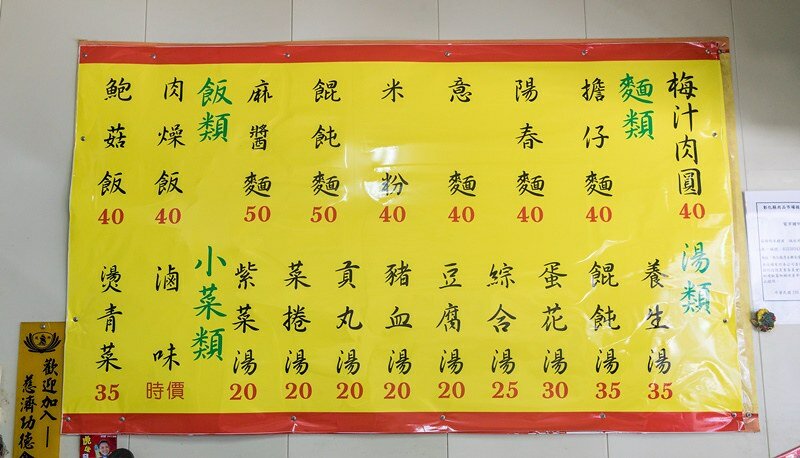 梅汁肉圓 40
麵類
擔仔麵 40
陽春麵 40
意麵 40
米粉 40
餛飩麵 50
麻醬麵 50
飯類
肉燥飯 40
鮑菇飯 40
湯類
養生湯 35
餛飩湯 35
蛋花湯 30
綜合湯 25
豆腐湯 20
豬血湯 20
貢丸湯 20
菜捲湯 20
紫菜湯 20
小菜類
滷味 時價
燙青菜 35
歡迎加入
慈濟功德會